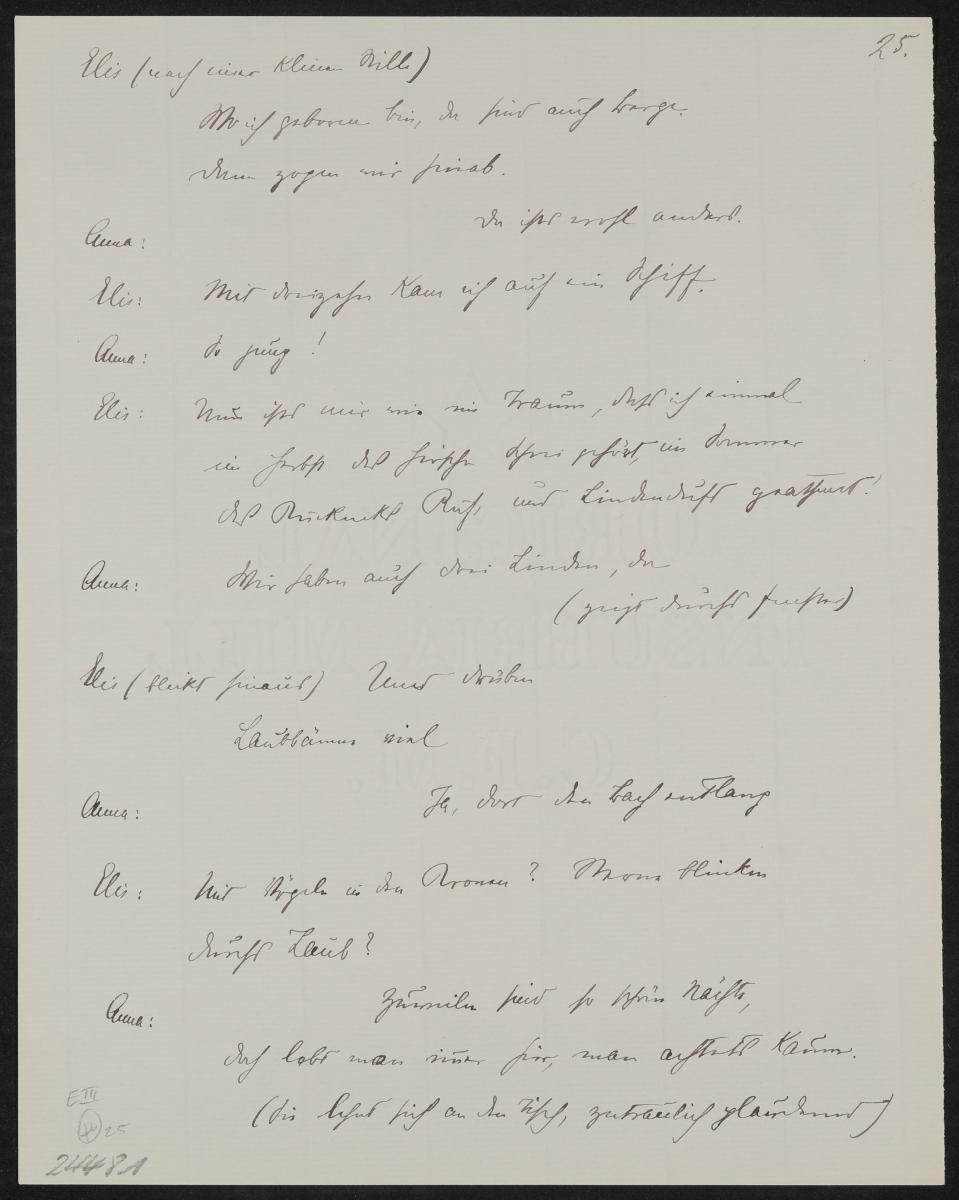 25.
Elis (nach einer kleinen Stille)
Wo ich geboren bin, da sind auch Berge.
Dann zogen wir hinab.
Da ists wohl anders.
Anna:
Elis: Mit dreizehn kam ich auf ein Schiff.
Anna: So jung!
Elis: Nun ists mir wie ein Traum, dass ich einmal
im Herbst des Hirschen Schrei gehört, im Sommer
des Kuckucks Ruf, und Lindenduft geathmet!
Anna: Wir haben auch drei Linden, da
(zeigt durchs Fenster)
Elis (blickt hinaus) Und drüben
Laubbäume viel
Anna: Ja, dort den Bach entlang
Elis: Mit Vögeln in den Kronen? Sterne blinken
durchs Laub?
Zuweilen sind so schön Nächte,
Anna:
doch lebt man immer hier, man achtets kaum.
(Sie lehnt sich an den Tisch, zutraulich plaudernd)
E III
25
2448A